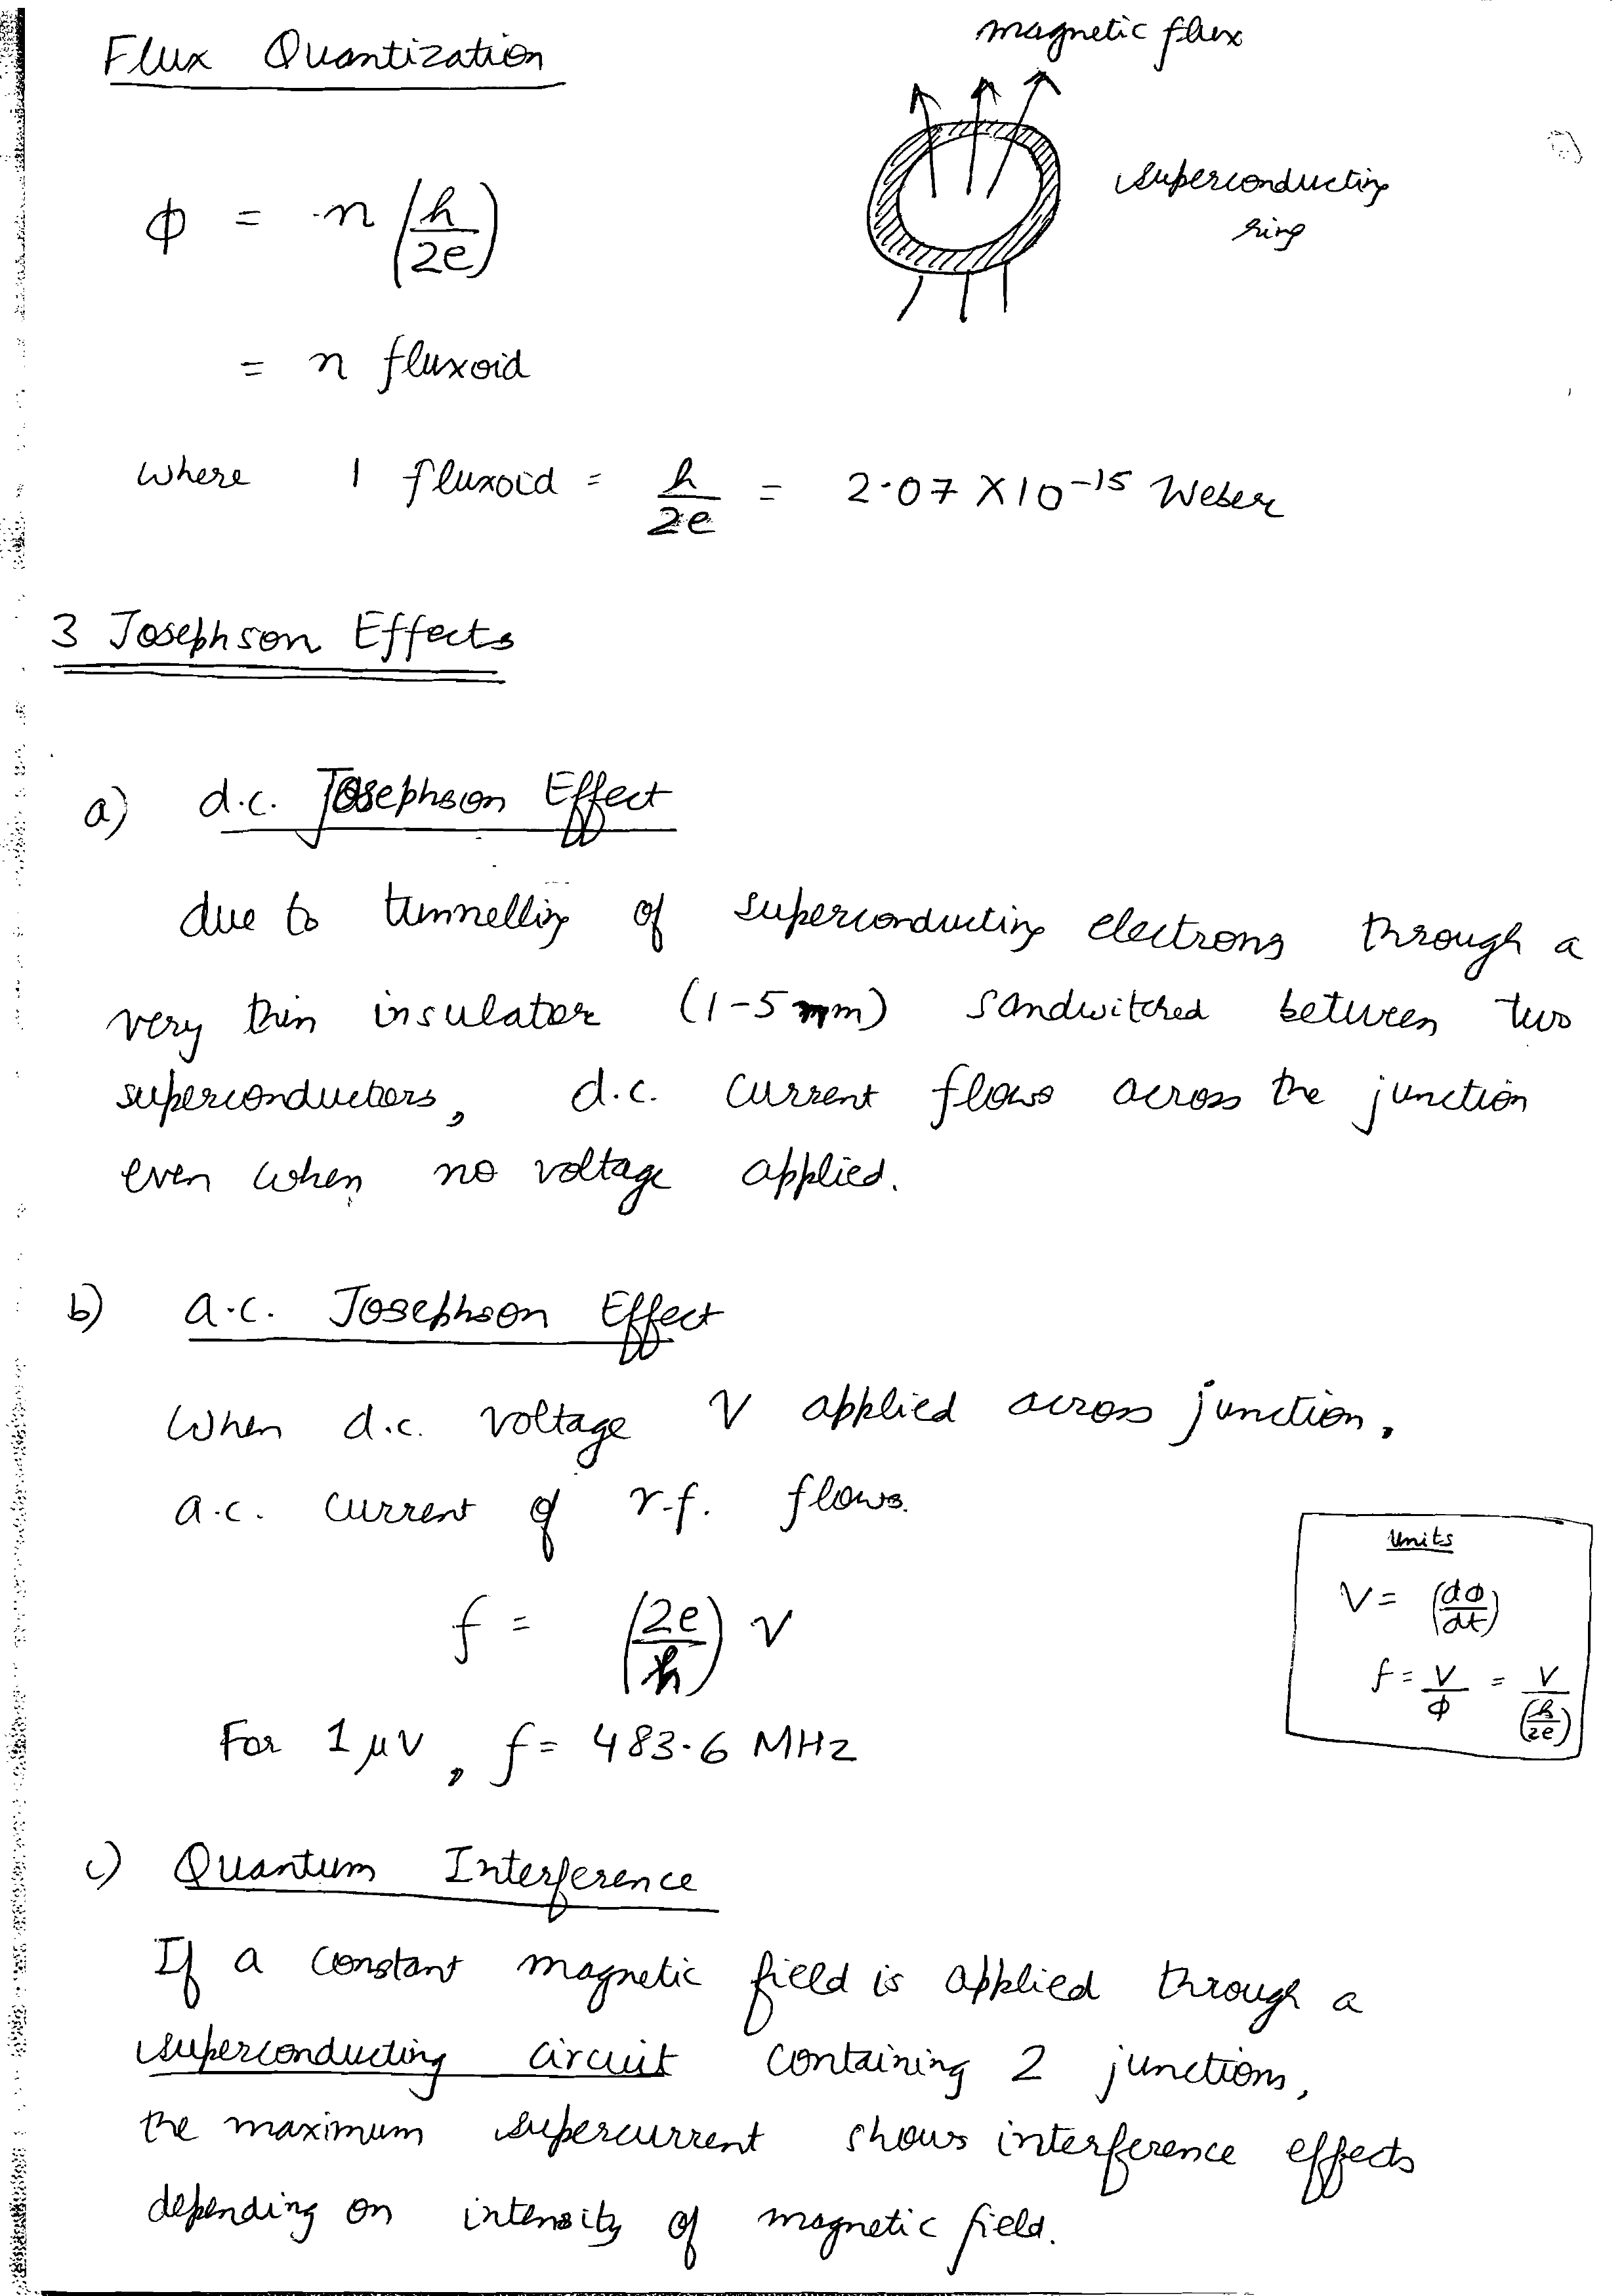 Flux Quantization
magnetic flux
superconducting
ring
φ = n (h/2e)
= n fluxoid
where 1 fluxoid = h/2e = 2.07 X 10⁻¹⁵ Weber
3 Josephson Effects
a) d.c. Josephson Effect
due to tunnelling of superconducting electrons through a
very thin insulator (1-5 nm) sandwitched between two
superconductors, d.c. current flows across the junction
even when no voltage applied.
b) a.c. Josephson Effect
When d.c. voltage V applied across junction,
a.c. current of r.f. flows.
f = (2e/h) V
For 1 μV, f = 483.6 MHz
Units
V = (dφ/dt)
f = V/φ = V/(h/2e)
c) Quantum Interference
If a constant magnetic field is applied through a
superconducting circuit containing 2 junctions,
the maximum supercurrent shows interference effects
depending on intensity of magnetic field.